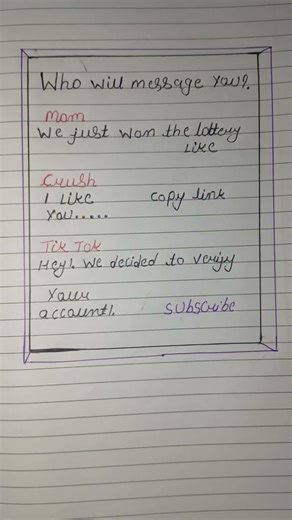 Who will message you?.
Mom
We just won the lottery
Like
Crush
I Like copy link
you.....
Tik Tok
Hey!. We decided to verify
your
account!. subscribe